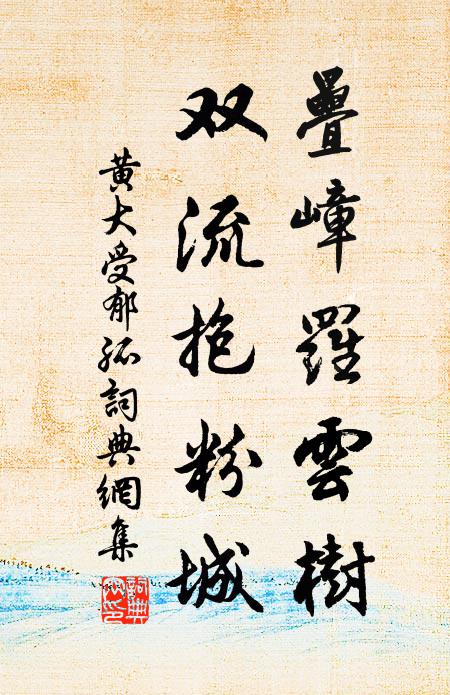 疊嶂羅雲樹
双流抱粉城
黄大受郁孤詞典網集